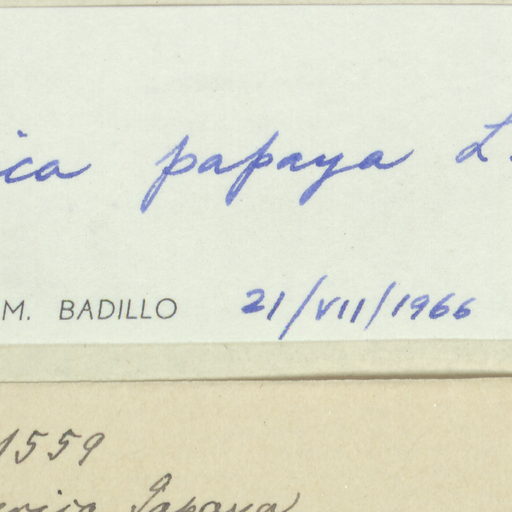 ica papaya L.
M. BADILLO 21/VII/1966
1559
Papaya